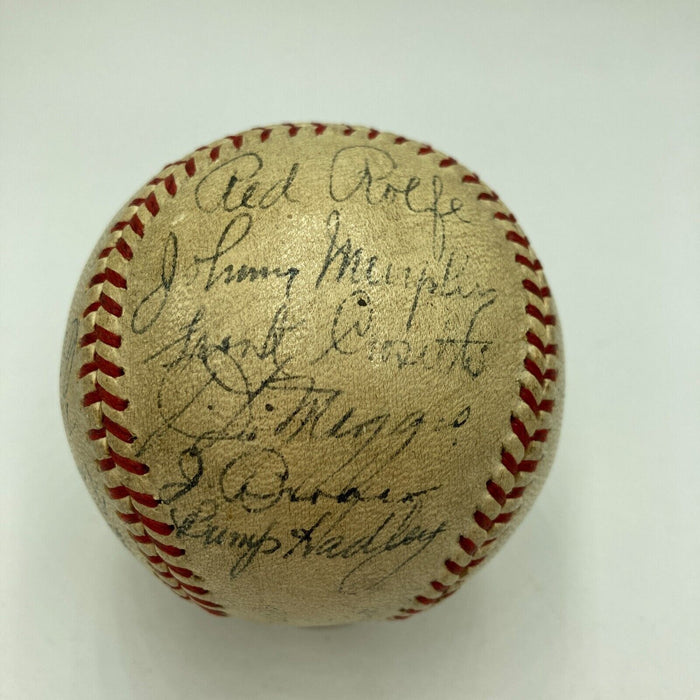 Red Rolfe
Johnny Murphy
Frank Crosetti
J. Di Maggio
Bump Hadley